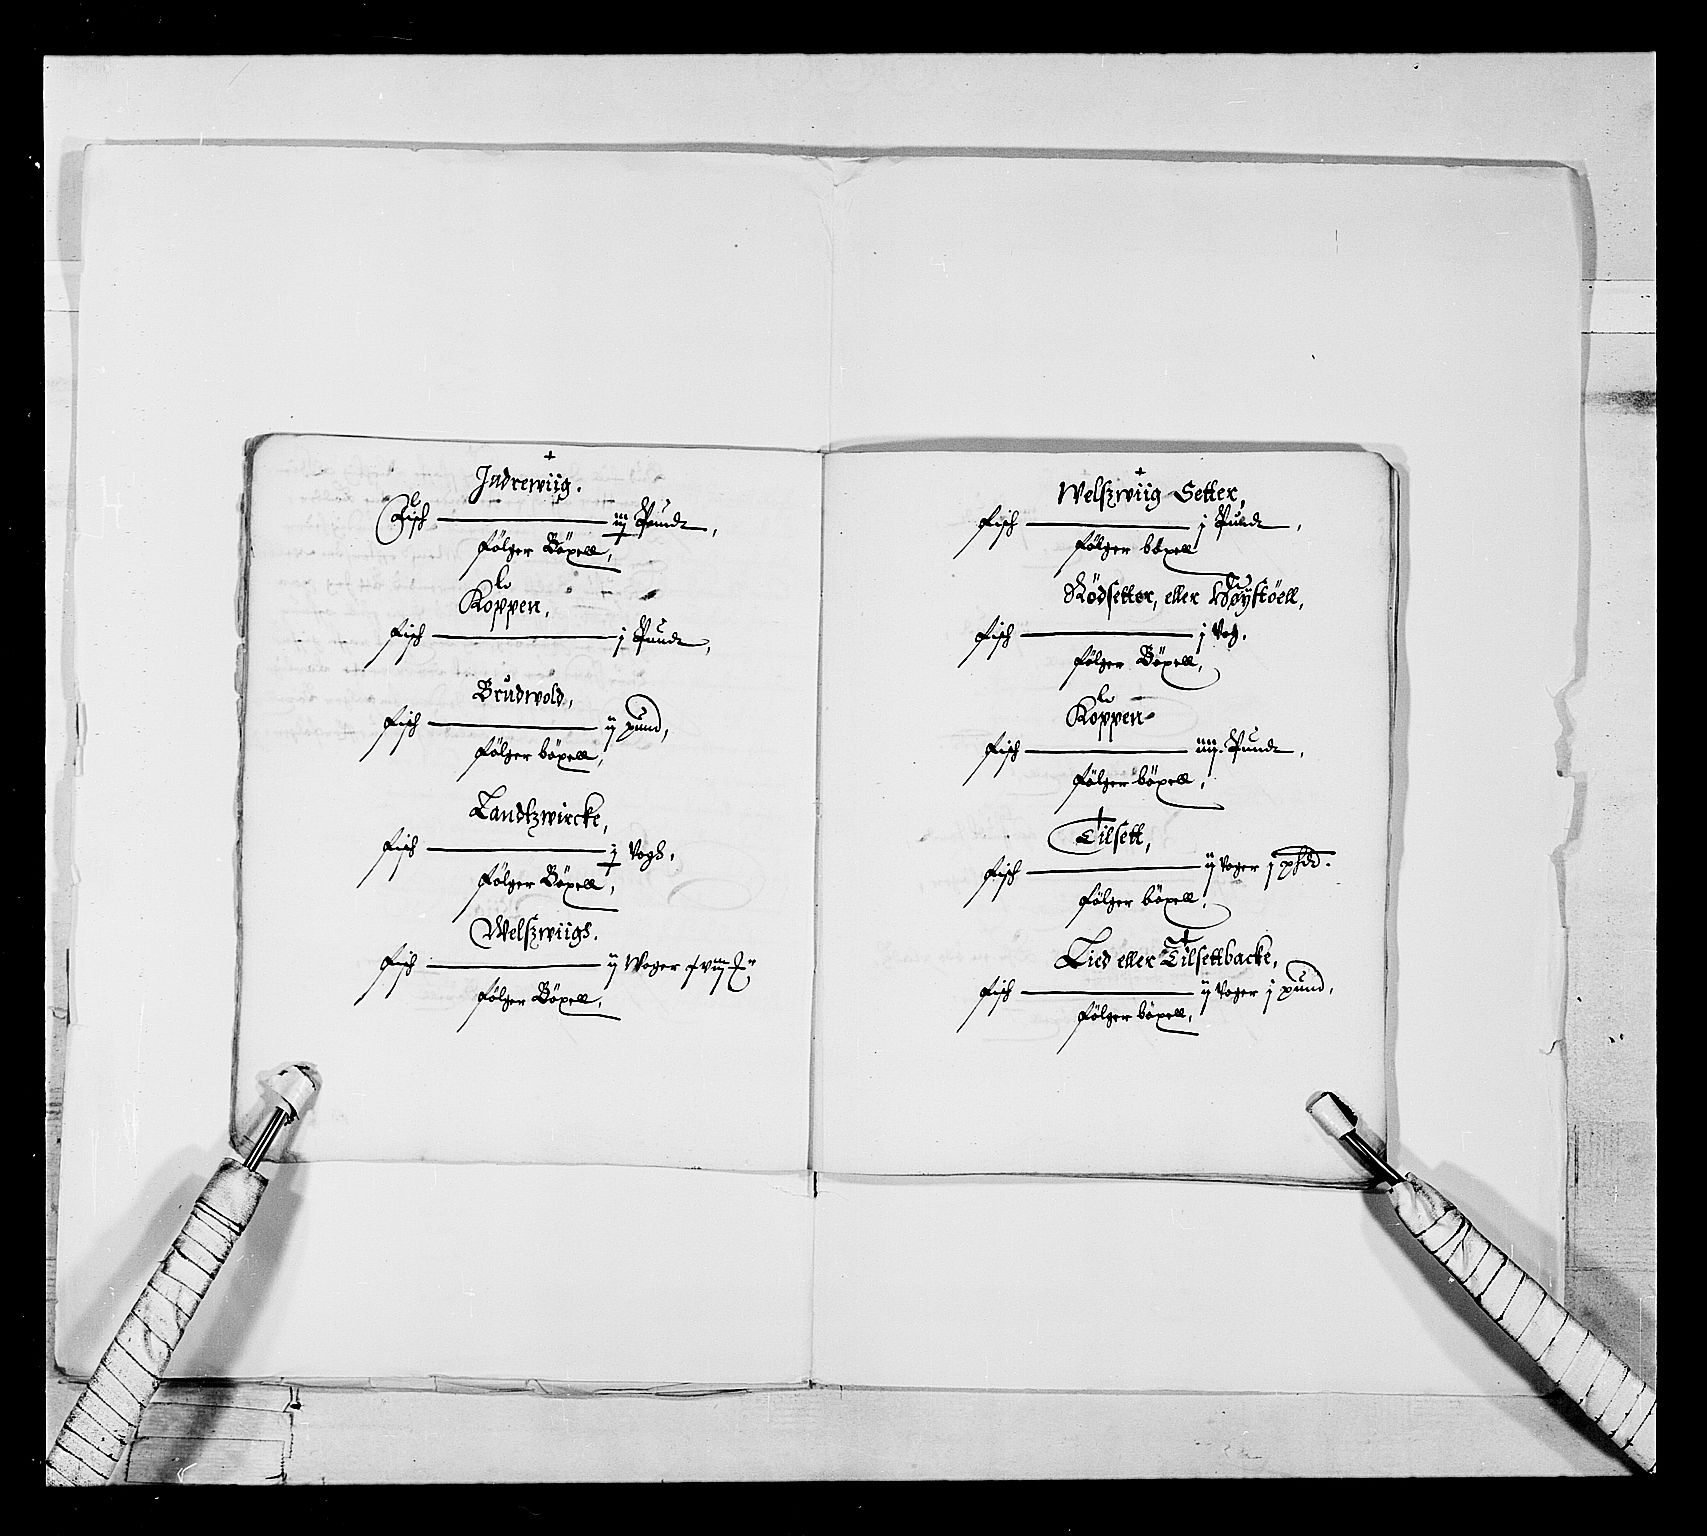 Indrewiig.
Fisch ——— iij Pundt,
følger Böxell,
Koppen,
Fisch ——— j Pundt,
Brudwold,
Fisch ——— ij pund,
følger böxell,
Landtzwircke,
Fisch ——— j Vogh,
følger Böxell,
Welszwiigh.
Fisch ——— ij Woger
følger Böxell,
Welszwiig Setter,
Fisch ——— j Pundt,
følger böxell
Rödsetter, eller Høystöell,
Fisch ——— j Vog.
følger Böxell,
Koppen
Fisch ——— iiij Pundt,
følger böxell,
Tilsett,
Fisch ——— ij Voger j
følger böxell,
Lied eller Tilsettbacke,
Fisch ——— ij Voger j pund,
følger böxell,